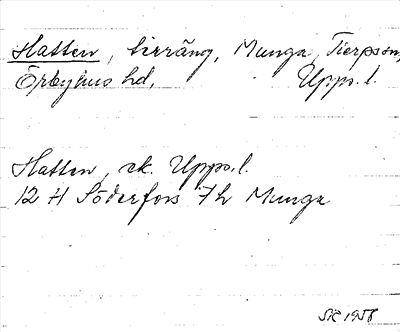 Hatten, liräng, Munga, Tierps sn,
Örbyhus hd, Upps. l.
Hatten, ek. Upps. l.
12 H Söderfors 7h Munga
SR 1958